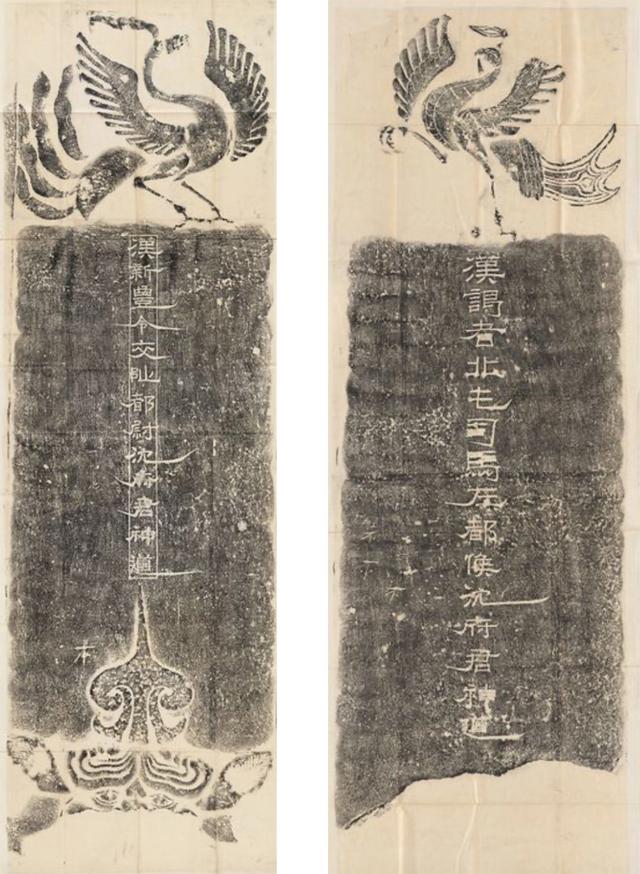 漢新豐令交阯都尉沈府君神道
漢謁者北屯司馬左都候沈府君神道